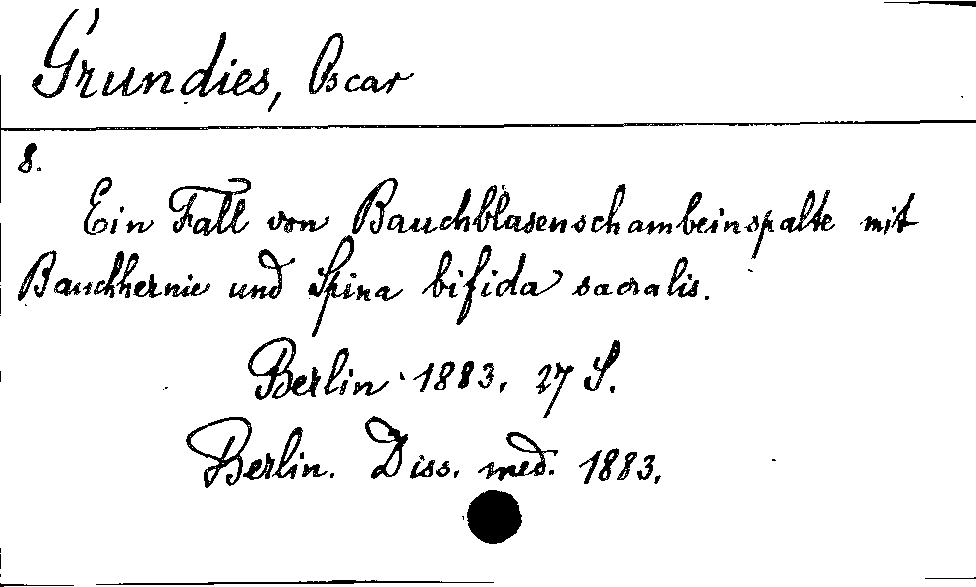 Grundies, Oscar
8.
Ein Fall von Bauchblasenschambeinspalte mit
Bauchhernie und Spina bifida sacralis.
Berlin 1883. 27 S.
Berlin. Diss. med. 1883.